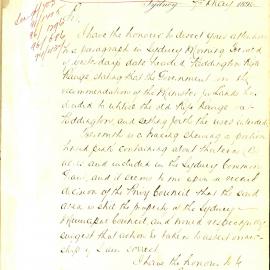 Sydney 7 May 1896
Sir,
I have the honour to direct your attention
to a paragraph in Sydney Morning Herald
of yesterday's date headed Paddington Rifle
Range stating that the Government on the
recommendation of the Minister for Lands has
decided to utilise the old Rifle Range at
Paddington, and setting forth the uses intended
Herewith is a tracing shewing a portion
tinted pink containing about thirteen
is and included in the Sydney Common
Plan, and it seems to me upon a recent
decision of the Privy Council that the said
area is still the property of the Sydney
Municipal Council, and would respectfully
suggest that action be taken to assert owner-
ship if I am correct.
I have the honour